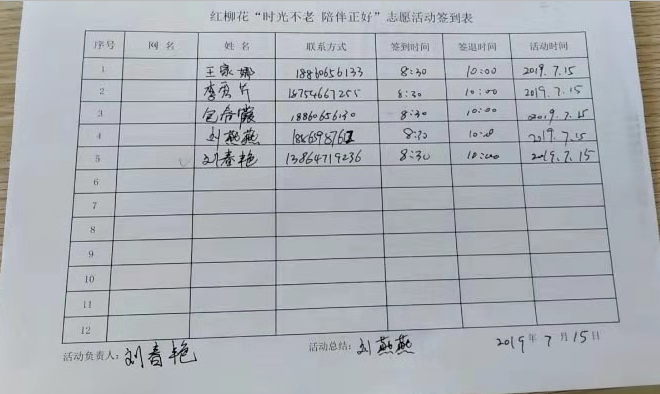 红柳花“时光不老 陪伴正好”志愿活动签到表
序号 网 名 姓 名 联系方式 签到时间 签退时间 活动时间
1 王家娜 18860656133 8:30 10:00 2019.7.15
2 8:30 10:00 2019.7.15
3 18860656130 8:30 10:00 2019.7.15
4 刘燕燕 8:30 10:00 2019.7.15
5 刘春艳 13864719236 8:30 10:00 2019.7.15
6
7
8
9
10
11
12
活动负责人: 刘春艳 活动总结: 刘燕燕 2019年7月15日